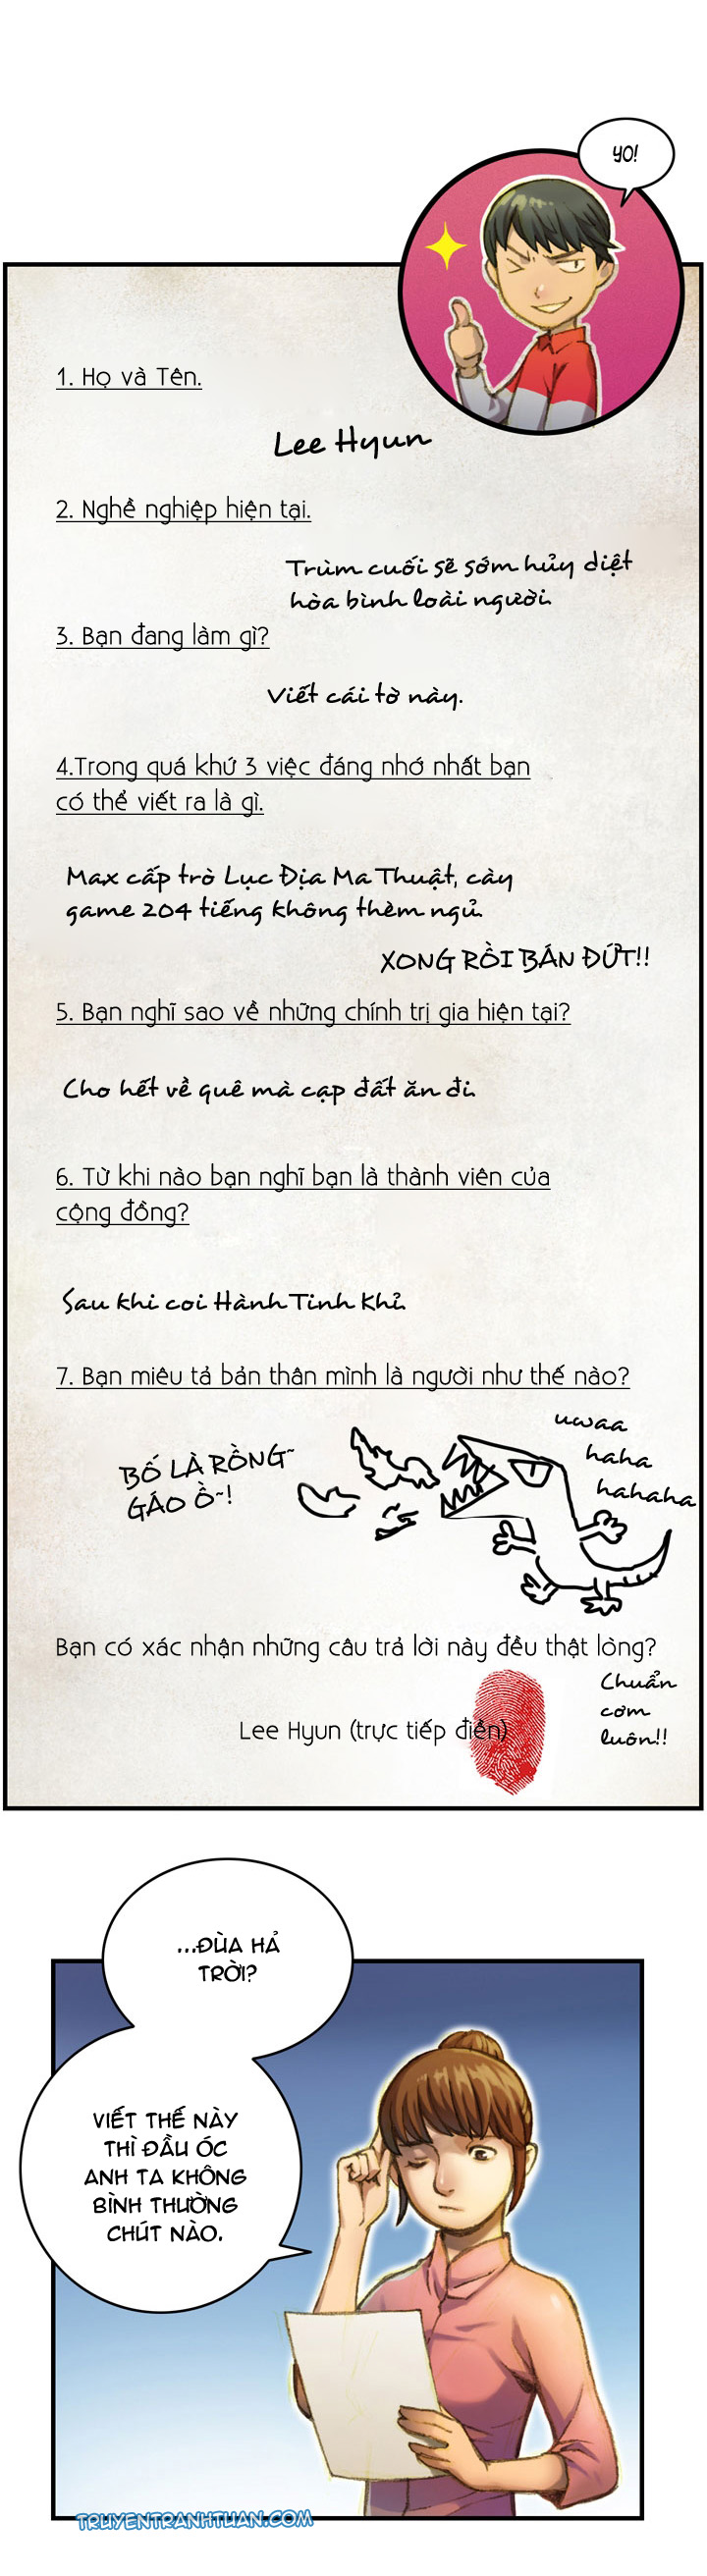 YO!
1. Họ và Tên.
Lee Hyun
2. Nghề nghiệp hiện tại.
Trùm cuối sẽ sớm hủy diệt
hòa bình loài người.
3. Bạn đang làm gì?
Viết cái tờ này.
4.Trong quá khứ 3 việc đáng nhớ nhất bạn
có thể viết ra là gì.
Max cấp trò Lục Địa Ma Thuật, cày
game 204 tiếng không thèm ngủ.
XONG RỒI BÁN ĐỨT!!
5. Bạn nghĩ sao về những chính trị gia hiện tại?
Cho hết về quê mà cạp đất ăn đi.
6. Từ khi nào bạn nghĩ bạn là thành viên của
cộng đồng?
Sau khi coi Hành Tinh Khỉ.
7. Bạn miêu tả bản thân mình là người như thế nào?
BỐ LÀ RỒNG~
GÁO Ồ~!
uwaa
haha
hahaha
Bạn có xác nhận những câu trả lời này đều thật lòng?
Lee Hyun (trực tiếp điền)
Chuẩn
cơm
luôn!!
...ĐÙA HẢ
TRỜI?
VIẾT THẾ NÀY
THÌ ĐẦU ÓC
ANH TA KHÔNG
BÌNH THƯỜNG
CHÚT NÀO.
TRUYENTRANHTUAN.COM